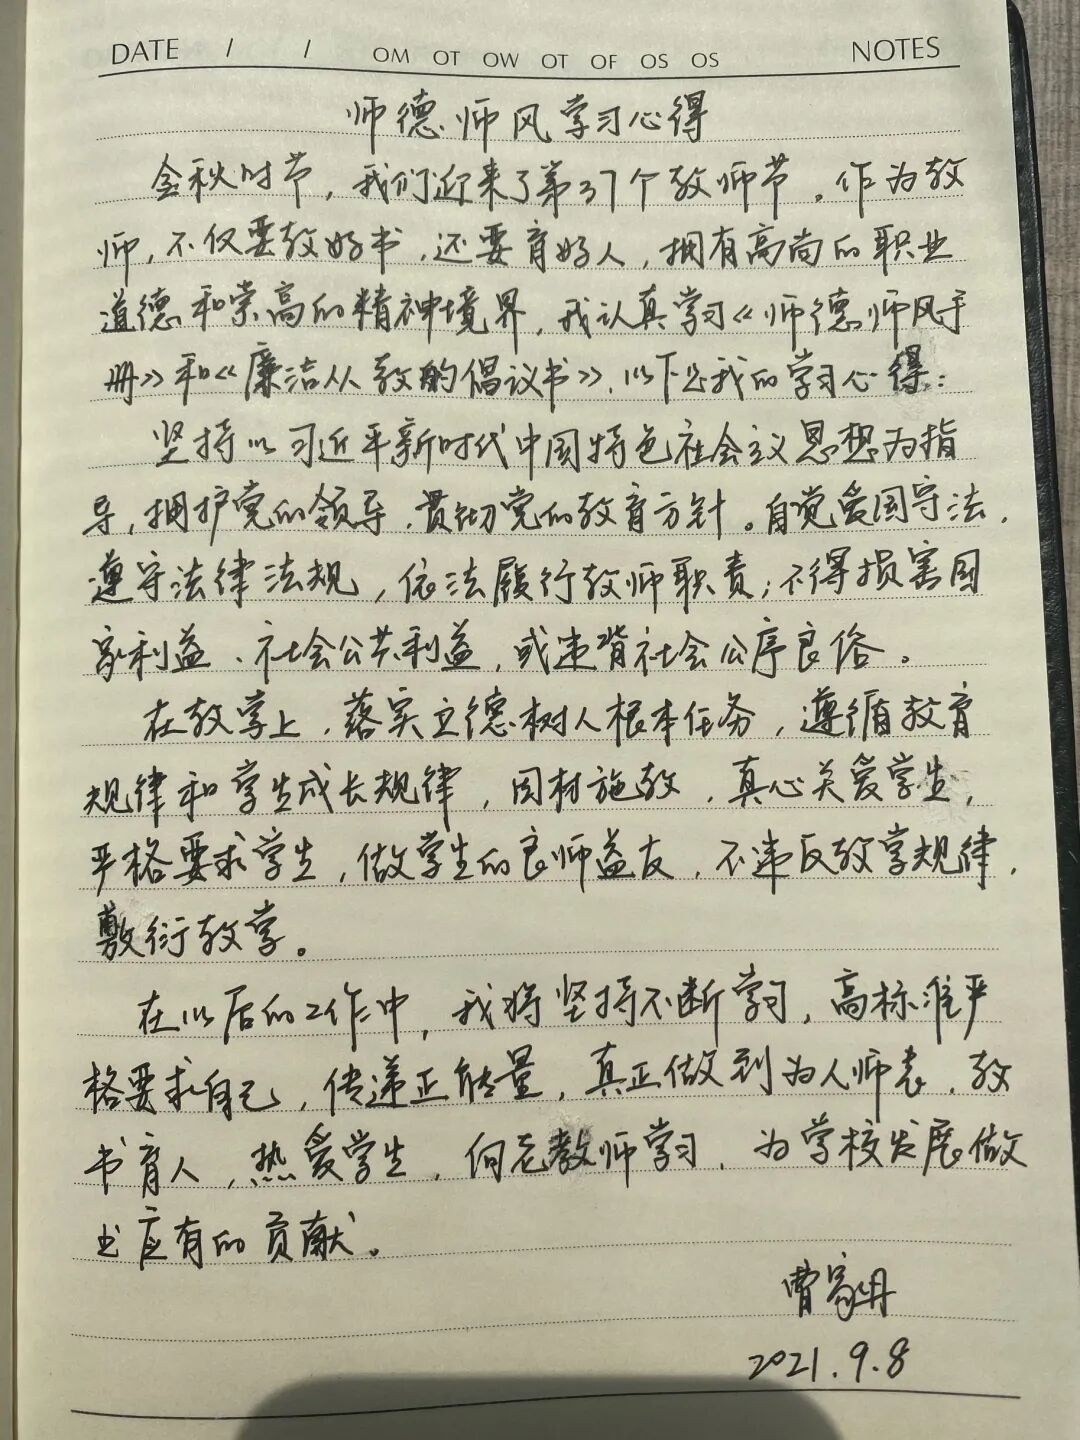 DATE / / OM OT OW OT OF OS OS NOTES
师德师风学习心得
金秋时节，我们迎来了第37个教师节。作为教
师，不仅要教好书，还要育好人，拥有高尚的职业
道德和崇高的精神境界，我认真学习《师德师风手
册》和《廉洁从教的倡议书》，以下是我的学习心得：
坚持以习近平新时代中国特色社会主义思想为指
导，拥护党的领导，贯彻党的教育方针。自觉爱国守法，
遵守法律法规，依法履行教师职责；不得损害国
家利益、社会公共利益，或违背社会公序良俗。
在教学上，落实立德树人根本任务，遵循教育
规律和学生成长规律，因材施教，真心关爱学生，
严格要求学生，做学生的良师益友，不违反教学规律，
敷衍教学。
在以后的工作中，我将坚持不断学习，高标准严
格要求自己，传递正能量，真正做到为人师表，教
书育人，热爱学生，向老教师学习，为学校发展做
出应有的贡献。
曹家
2021.9.8